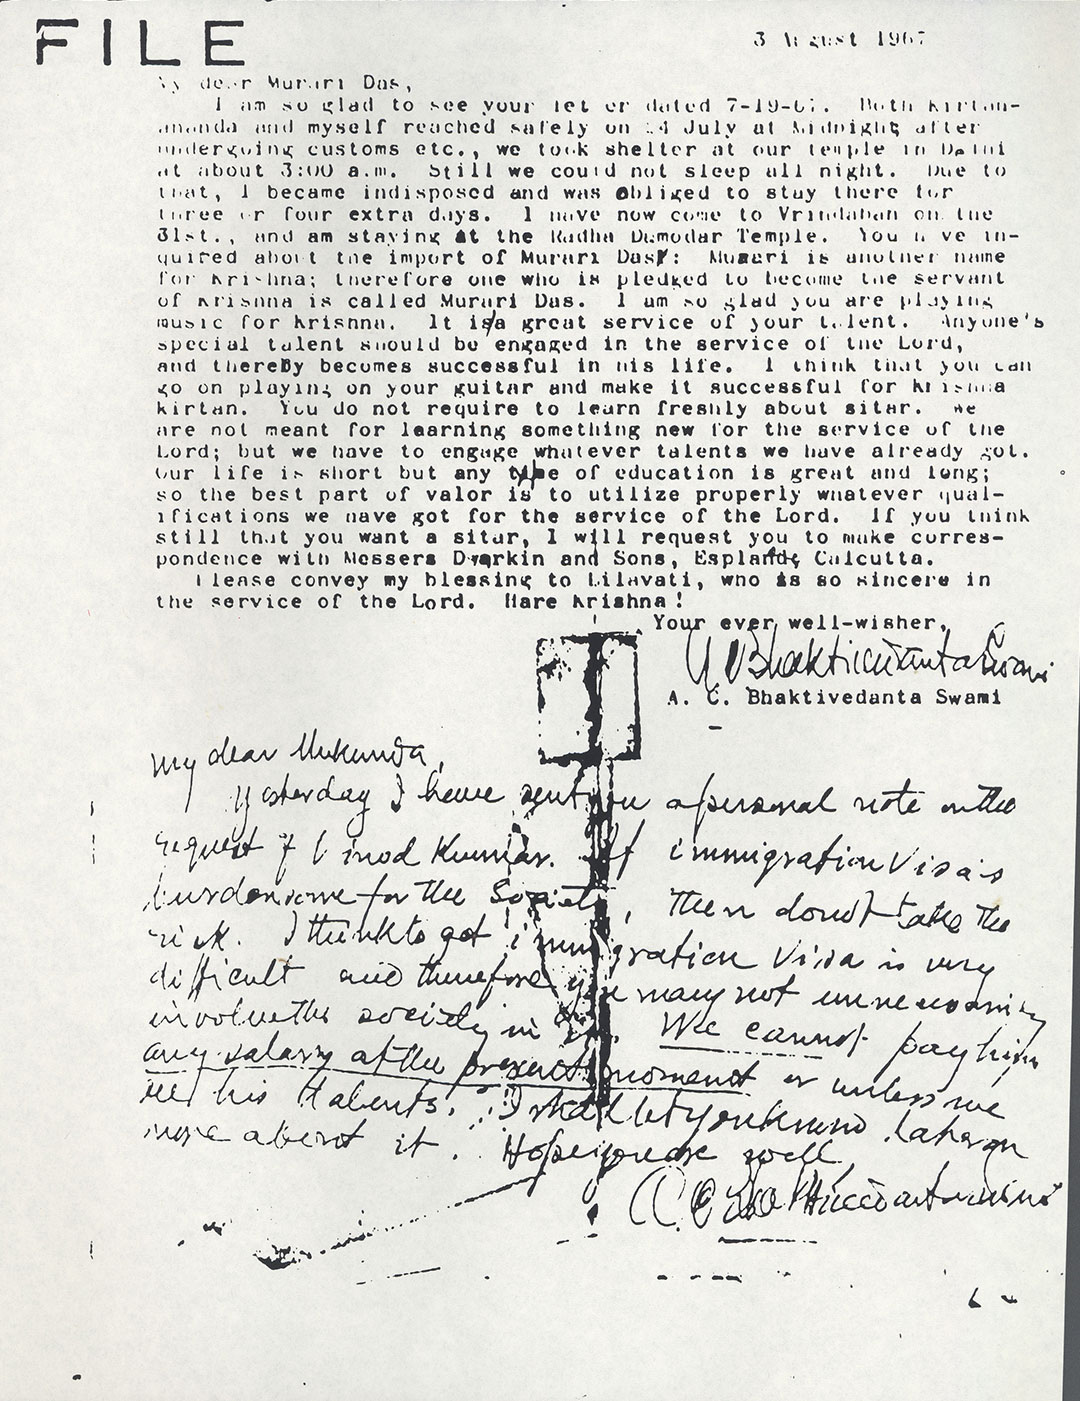 FILE
3 August 1967
My dear Murari Das,
I am so glad to see your let er dated 7-19-67. Both Kirtan-
ananda and myself reached safely on 24 July at Midnight after
undergoing customs etc., we took shelter at our temple in Delhi
at about 3:00 a.m. Still we could not sleep all night. Due to
that, I became indisposed and was obliged to stay there for
three or four extra days. I have now come to Vrindaban on the
31st., and am staying at the Radha Damodar Temple. You have in-
quired about the import of Murari Das: Murari is another name
for Krishna; therefore one who is pledged to become the servant
of Krishna is called Murari Das. I am so glad you are playing
music for Krishna. It is a great service of your talent. Anyone's
special talent should be engaged in the service of the Lord,
and thereby becomes successful in his life. I think that you can
go on playing on your guitar and make it successful for Krishna
kirtan. You do not require to learn freshly about sitar. We
are not meant for learning something new for the service of the
Lord; but we have to engage whatever talents we have already got.
Our life is short but any type of education is great and long;
so the best part of valor is to utilize properly whatever qual-
ifications we have got for the service of the Lord. If you think
still that you want a sitar, I will request you to make corres-
pondence with Messers Dwarkin and Sons, Esplande Calcutta.
Please convey my blessing to Lilavati, who is so sincere in
the service of the Lord. Hare Krishna!
Your ever well-wisher,
A. C. Bhaktivedanta Swami
A. C. Bhaktivedanta Swami
My dear Mukunda,
Yesterday I have sent you a personal note on the
request of Vinod Kumar. If immigration Visa is
burdensome for the Society, then donot take the
risk. I think to get immigration Visa is very
difficult and therefore you may not unnecessarily
involve the society in it. We cannot pay him
any salary at the present moment or unless we
see his talents. I shall let you know later on
more about it. Hope you are well,
A. C. Bhaktivedanta Swami